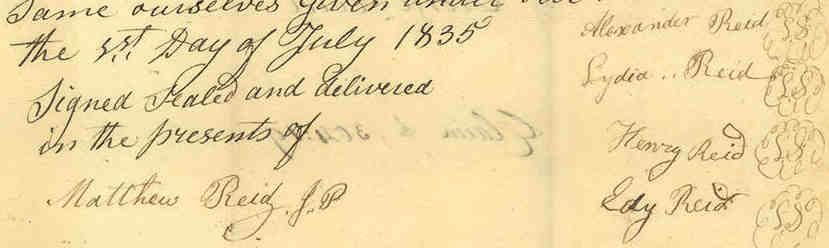 Same ourselves Given under
the 21st Day of July 1835
Signed Sealed and delivered
in the presents of
Matthew Reid J.P
Alexander Reid
Lydia .. Reid
Henry Reid
Edy Reid